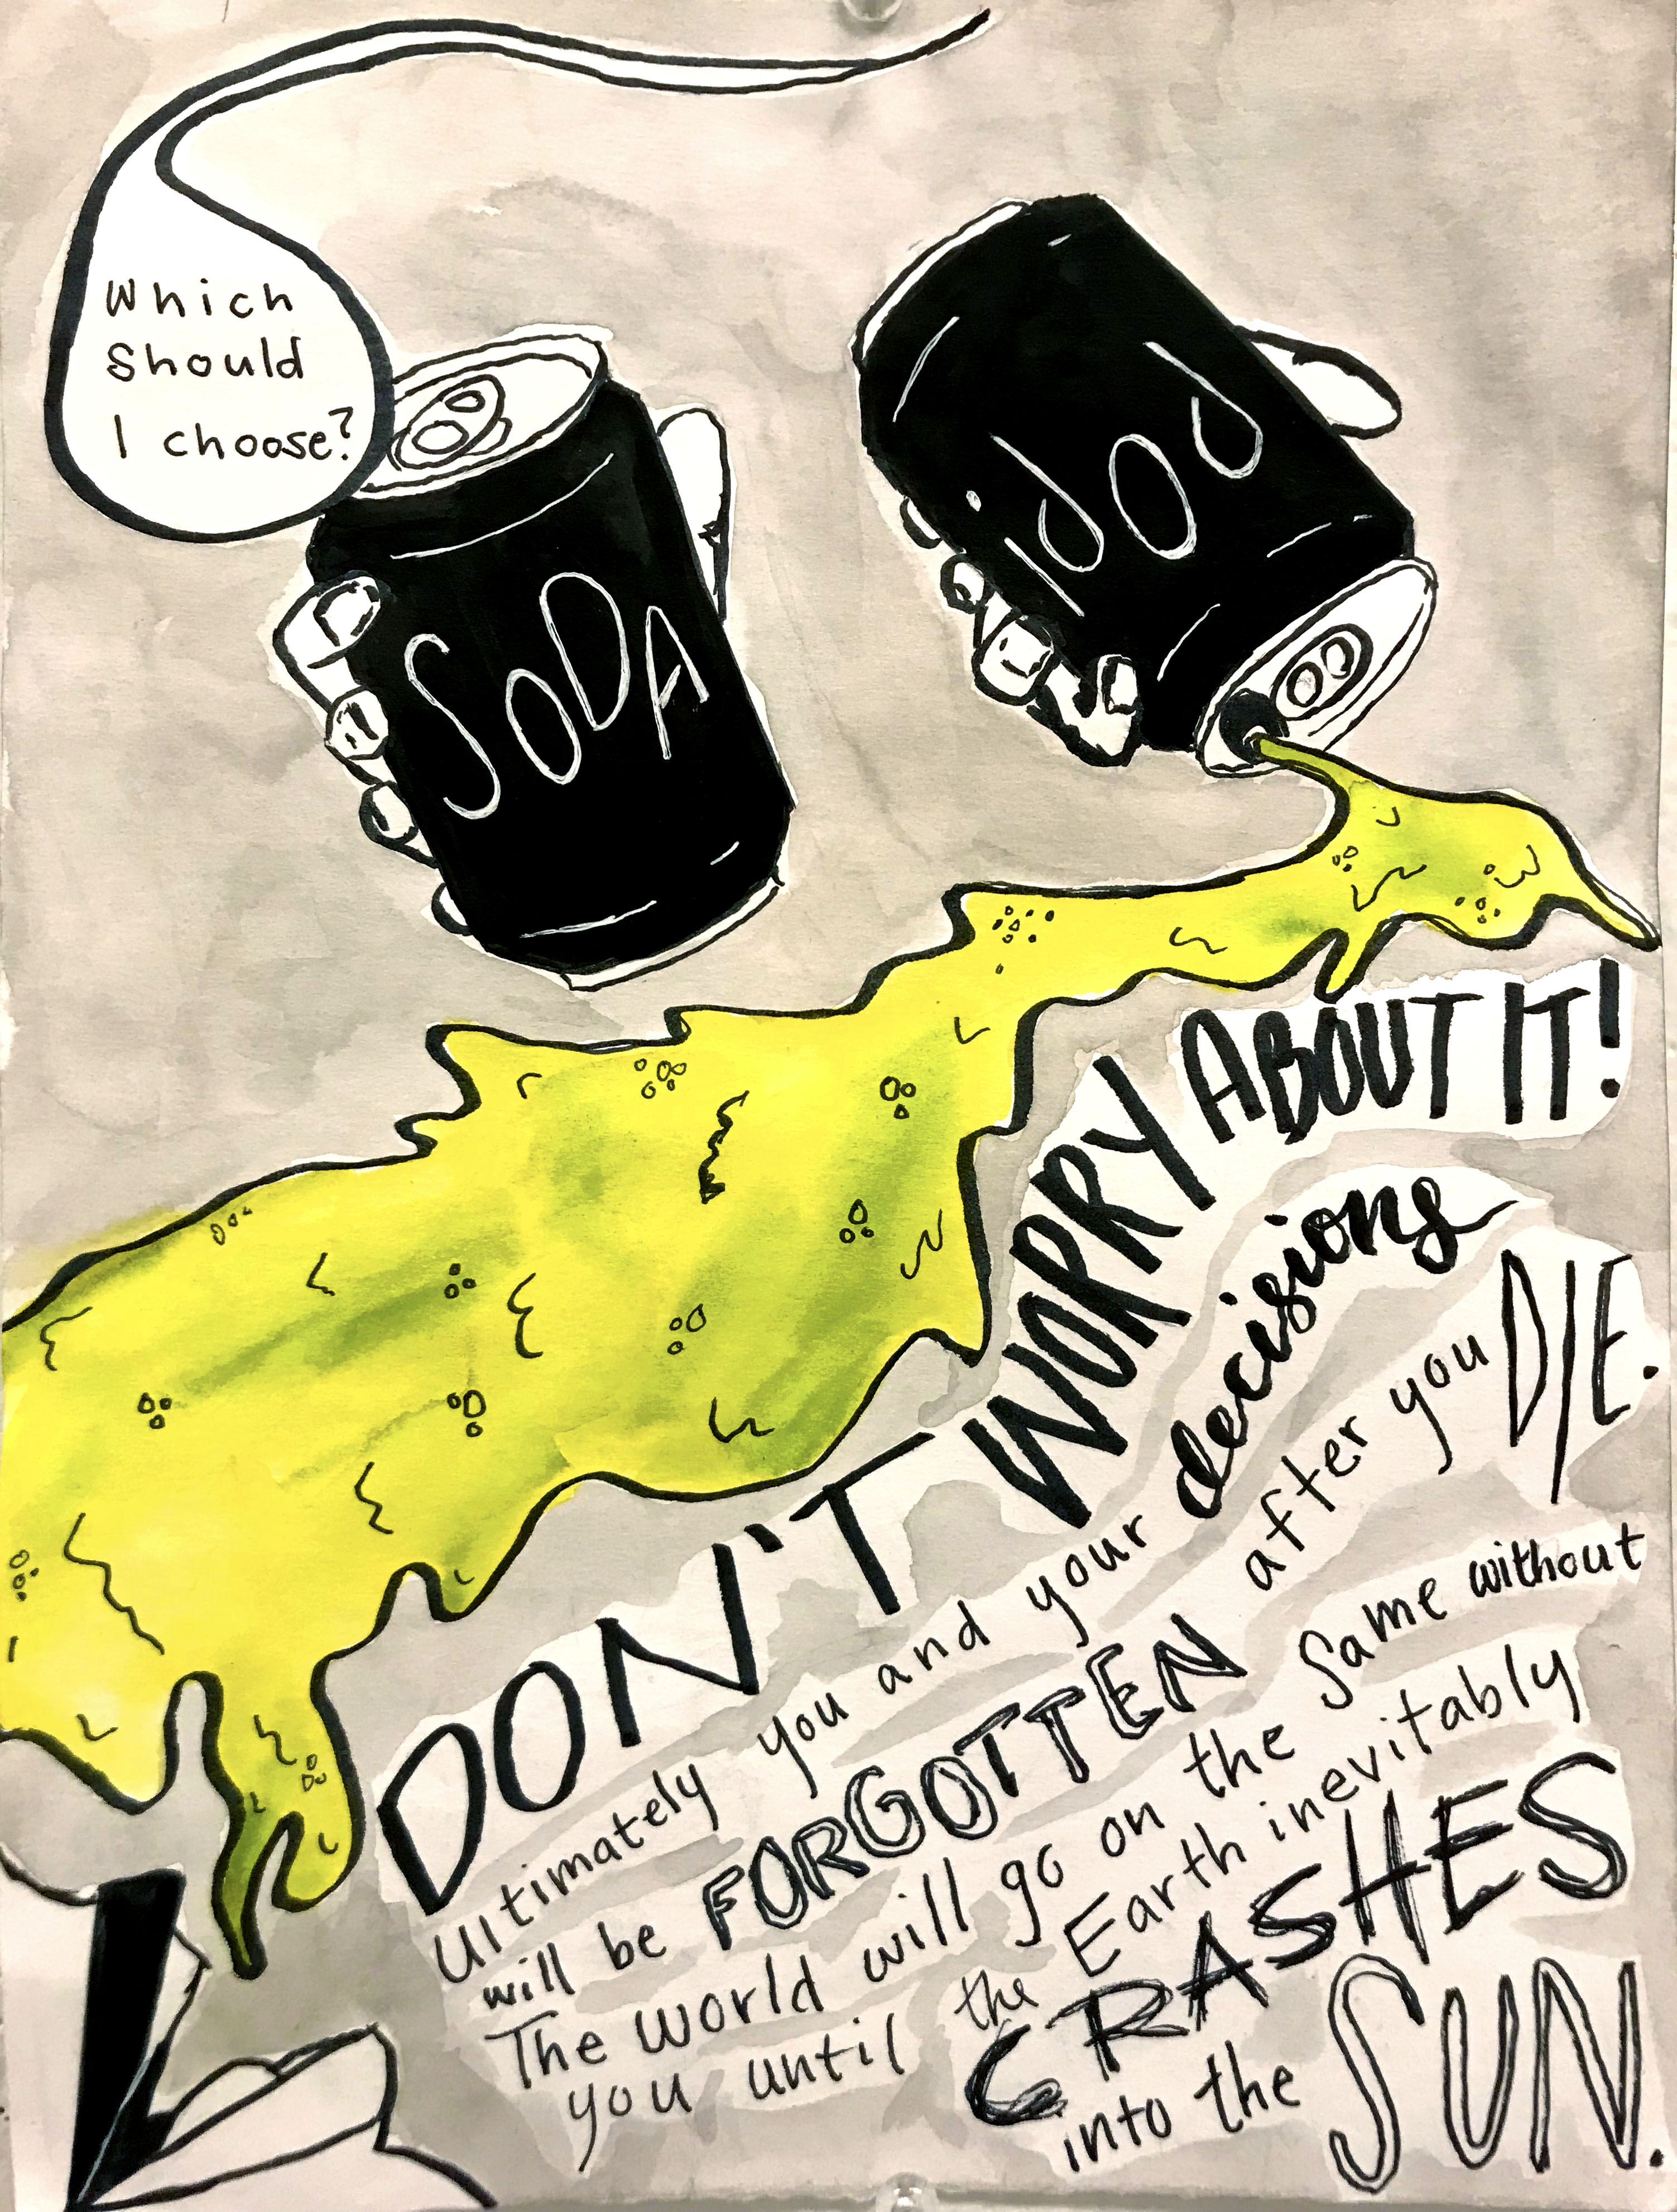 Which
Should
I choose?
SODA
pop!
DON'T WORRY ABOUT IT!
Ultimately you and your decisions
will be FORGOTTEN after you DIE.
The world will go on the Same without
you until the Earth inevitably
CRASHES
into the SUN.